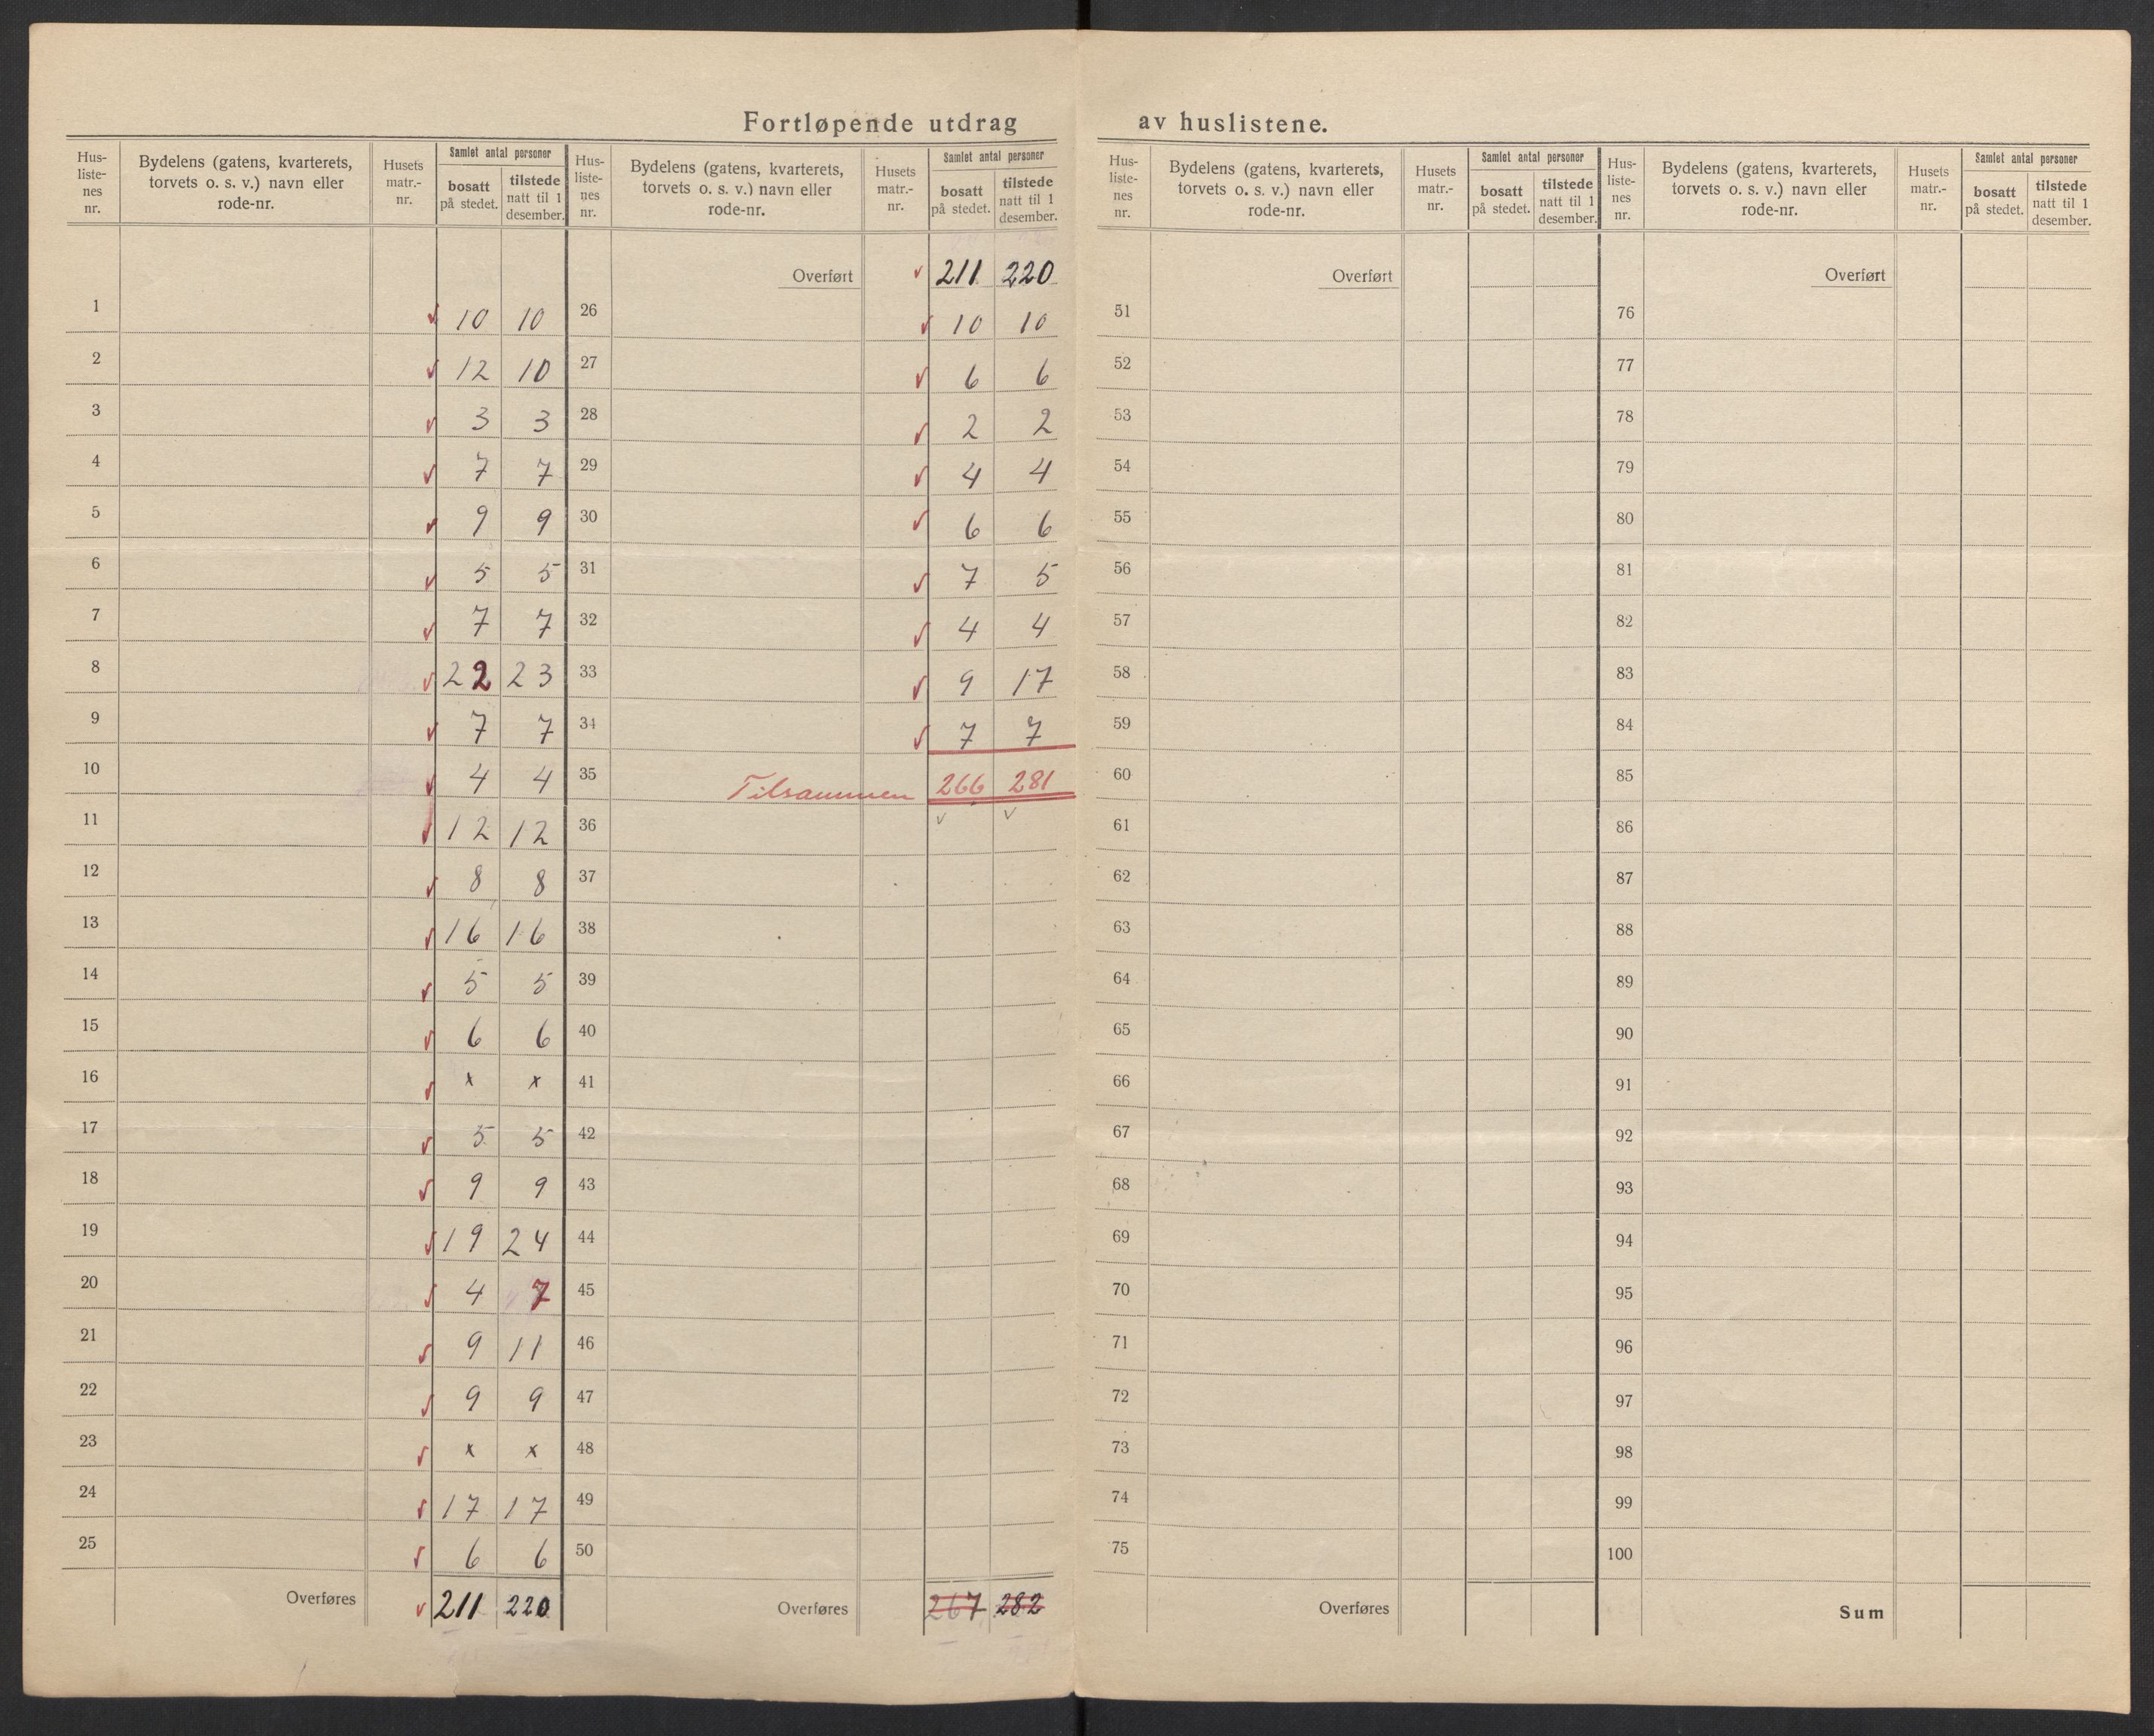 Fortløpende utdrag av huslistene.
Hus-listenes nr. | Bydelens (gatens, kvarterets, torvets o. s. v.) navn eller rode-nr. | Husets matr.-nr. | Samlet antal personer bosatt på stedet. | tilstede natt til 1 desember.
1 ✓ 10 10
2 ✓ 12 10
3 ✓ 3 3
4 ✓ 7 7
5 ✓ 9 9
6 ✓ 5 5
7 ✓ 7 7
8 ✓ 22 23
9 ✓ 7 7
10 ✓ 4 4
11 ✓ 12 12
12 ✓ 8 8
13 ✓ 16 16
14 ✓ 5 5
15 ✓ 6 6
16 ✓ x x
17 ✓ 5 5
18 ✓ 9 9
19 ✓ 19 24
20 ✓ 4 7
21 ✓ 9 11
22 ✓ 9 9
23 ✓ x x
24 ✓ 17 17
25 ✓ 6 6
Overføres ✓ 211 220
Hus-listenes nr. | Bydelens (gatens, kvarterets, torvets o. s. v.) navn eller rode-nr. | Husets matr.-nr. | Samlet antal personer bosatt på stedet. | tilstede natt til 1 desember.
Overført ✓ 211 220
26 ✓ 10 10
27 ✓ 6 6
28 ✓ 2 2
29 ✓ 4 4
30 ✓ 6 6
31 ✓ 7 5
32 ✓ 4 4
33 ✓ 9 17
34 ✓ 7 7
35 Tilsammen 266 281
36 ✓ ✓
37
38
39
40
41
42
43
44
45
46
47
48
49
50
Overføres 267 282
Hus-listenes nr. | Bydelens (gatens, kvarterets, torvets o. s. v.) navn eller rode-nr. | Husets matr.-nr. | Samlet antal personer bosatt på stedet. | tilstede natt til 1 desember.
Overført
51
52
53
54
55
56
57
58
59
60
61
62
63
64
65
66
67
68
69
70
71
72
73
74
75
Overføres
Hus-listenes nr. | Bydelens (gatens, kvarterets, torvets o. s. v.) navn eller rode-nr. | Husets matr.-nr. | Samlet antal personer bosatt på stedet. | tilstede natt til 1 desember.
Overført
76
77
78
79
80
81
82
83
84
85
86
87
88
89
90
91
92
93
94
95
96
97
98
99
100
Sum